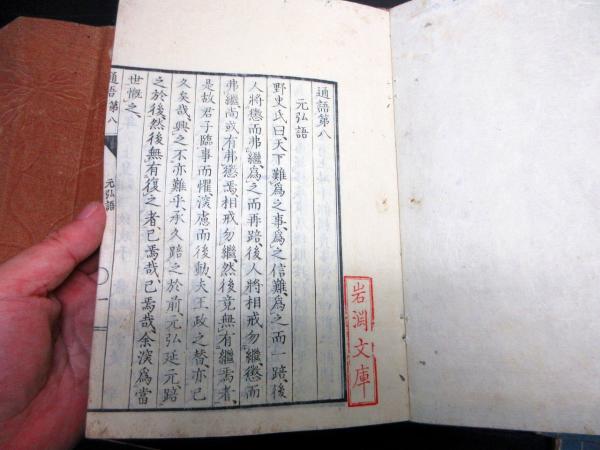 通語第八
元弘語
野史氏曰、天下難為之事、為之信難、為之而一踣、後
人將懲而弗繼、為之而再踣、後人將相戒勿繼、懲而
弗繼、尚或有弗懲焉、相戒勿繼、然後竟無有繼焉者、
是故君子臨事而懼、深慮而後動、夫王政之替亦已
久矣哉、興之不亦難乎、承久踣之於前、元弘延元踣
之於後、然後無有復之者、已焉哉、已焉哉、余深為當
世慨之、
通語第八
元弘語
一
岩淵文庫